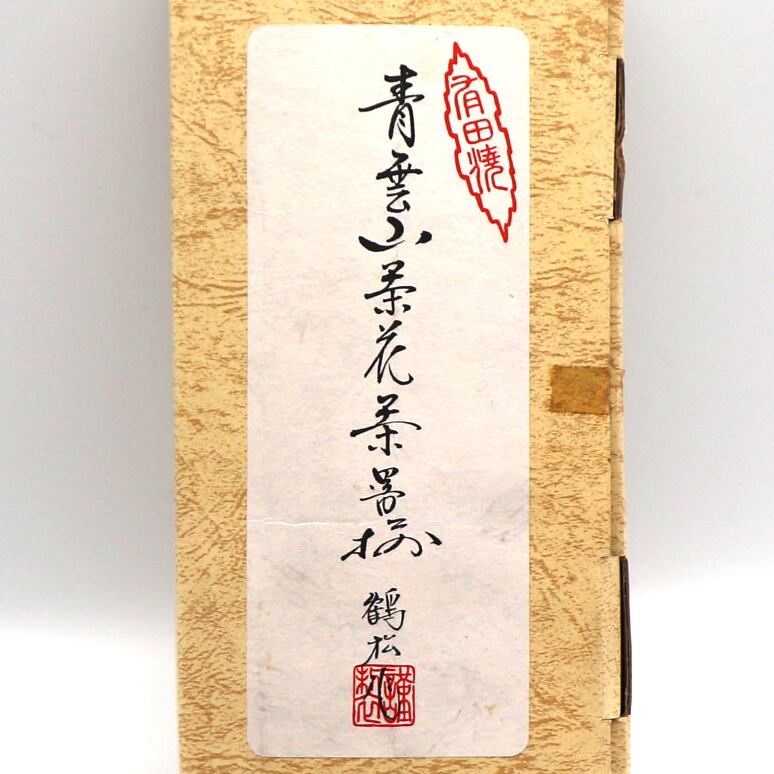 有田焼
青雲山茶花茶器揃
鶴松
謹製